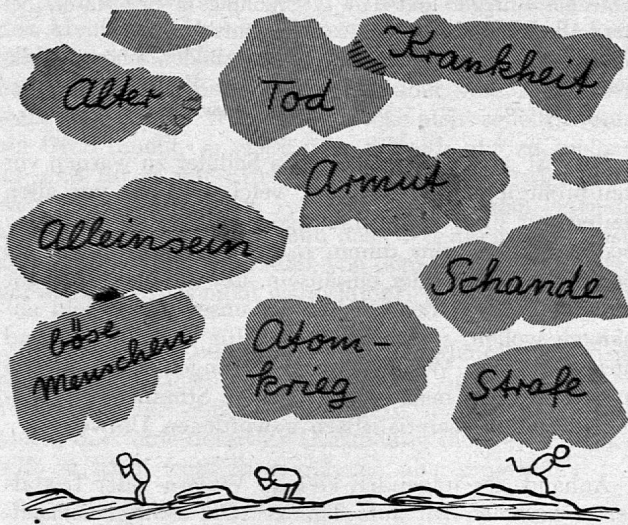 Alter
Tod
Krankheit
Armut
Alleinsein
Schande
böse
Menschen
Atom-
krieg
Strafe